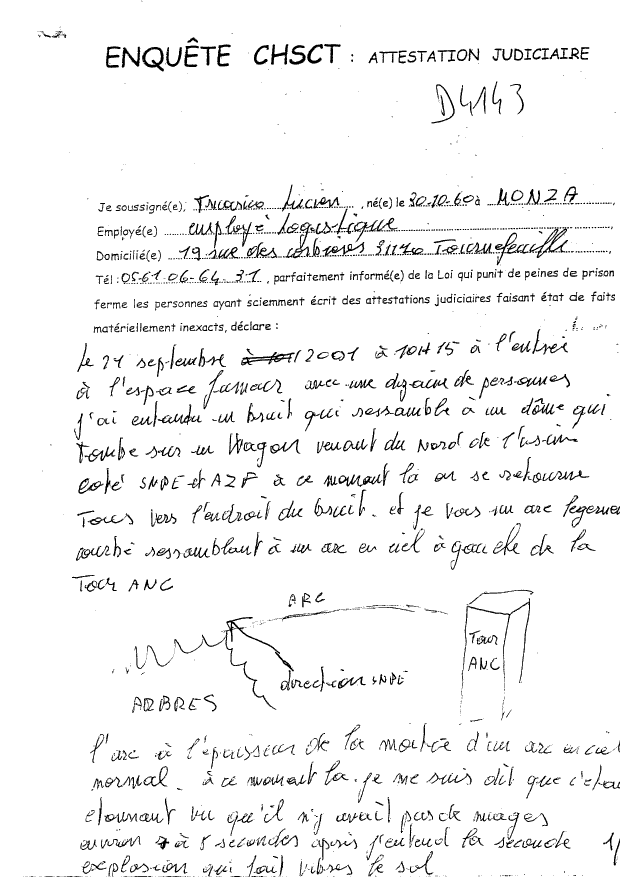 ENQUÊTE CHSCT : ATTESTATION JUDICIAIRE
D4143
Je soussigné(e), Lucien , né(e) le 30-10-60 à MONZA
Employé(e) employé Logistique
Domicilié(e) 19 rue des 31170 Tournefeuille
Tél : 05-61-06-64 31 , parfaitement informé(e) de la Loi qui punit de peines de prison
ferme les personnes ayant sciemment écrit des attestations judiciaires faisant état de faits
matériellement inexacts, déclare :
Le 21 septembre 2001 à 10H15 à l'entrée
à l'espace fumeur avec une dizaine de personnes
j'ai entendu un bruit qui ressamble à un dôme qui
tombe sur un Wagon venant du Nord de l'usine
coté SNPE et AZF à ce moment là on se retourne
Tous vers l'endroit du bruit. et je vois un arc legereme
courbé ressamblant à un arc en ciel à gauche de la
Tour ANC
ARC
Tour
ANC
direction SNPE
ARBRES
l'arc à l'épaisseur de la moitié d'un arc en ciel
normal. à ce moment la je me suis dit que c'étai
etonnant vu qu'il n'y avait pas de nuages
environ 7 à 8 secondes après j'entend la seconde
explosion qui fait vibrer le sol
1/